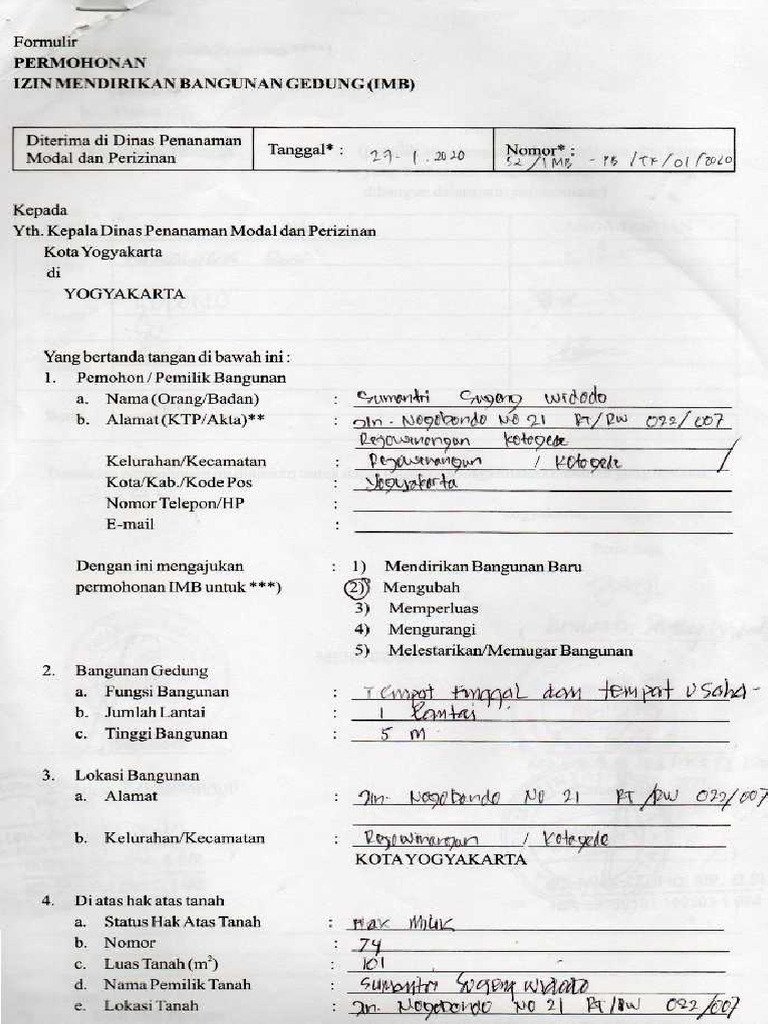 Formulir
PERMOHONAN
IZIN MENDIRIKAN BANGUNAN GEDUNG (IMB)
Diterima di Dinas Penanaman Modal dan Perizinan
Tanggal* : 27-1.2020
Nomor* : 52/IMB - PB /TF/01/2020
Kepada
Yth. Kepala Dinas Penanaman Modal dan Perizinan
Kota Yogyakarta
di
YOGYAKARTA
Yang bertanda tangan di bawah ini :
1. Pemohon / Pemilik Bangunan
a. Nama (Orang/Badan) : Sumantri Sugeng Widodo
b. Alamat (KTP/Akta)** : Jln. Nogobondo No 21 RT/RW 022/007
Rejowinangun Kotagede
Kelurahan/Kecamatan : Rejowinangun / Kotagede
Kota/Kab./Kode Pos : Yogyakarta
Nomor Telepon/HP :
E-mail :
Dengan ini mengajukan : 1) Mendirikan Bangunan Baru
permohonan IMB untuk ***) 2) Mengubah
3) Memperluas
4) Mengurangi
5) Melestarikan/Memugar Bangunan
2. Bangunan Gedung
a. Fungsi Bangunan : Tempat tinggal dan tempat usaha-
b. Jumlah Lantai : 1 Lantai
c. Tinggi Bangunan : 5 m
3. Lokasi Bangunan
a. Alamat : Jln. Nogobondo No 21 RT/RW 022/007
b. Kelurahan/Kecamatan : Rejowinangun / Kotagede
KOTA YOGYAKARTA
4. Di atas hak atas tanah
a. Status Hak Atas Tanah : Hak Milik
b. Nomor : 74
c. Luas Tanah (m²) : 101
d. Nama Pemilik Tanah : Sumantri Sugeng Widodo
e. Lokasi Tanah : Jln. Nogobondo No 21 RT/RW 022/007